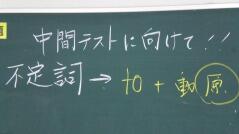 中間テストに向けて!!
不定詞 → to + 動原